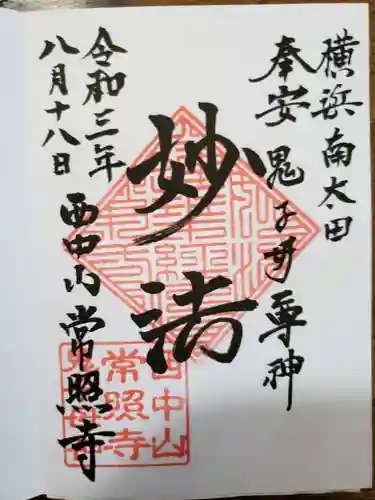 横浜南太田
奉安 鬼子母尊神
妙法
令和三年
八月十八日
西中山 常照寺
西中山
常照寺